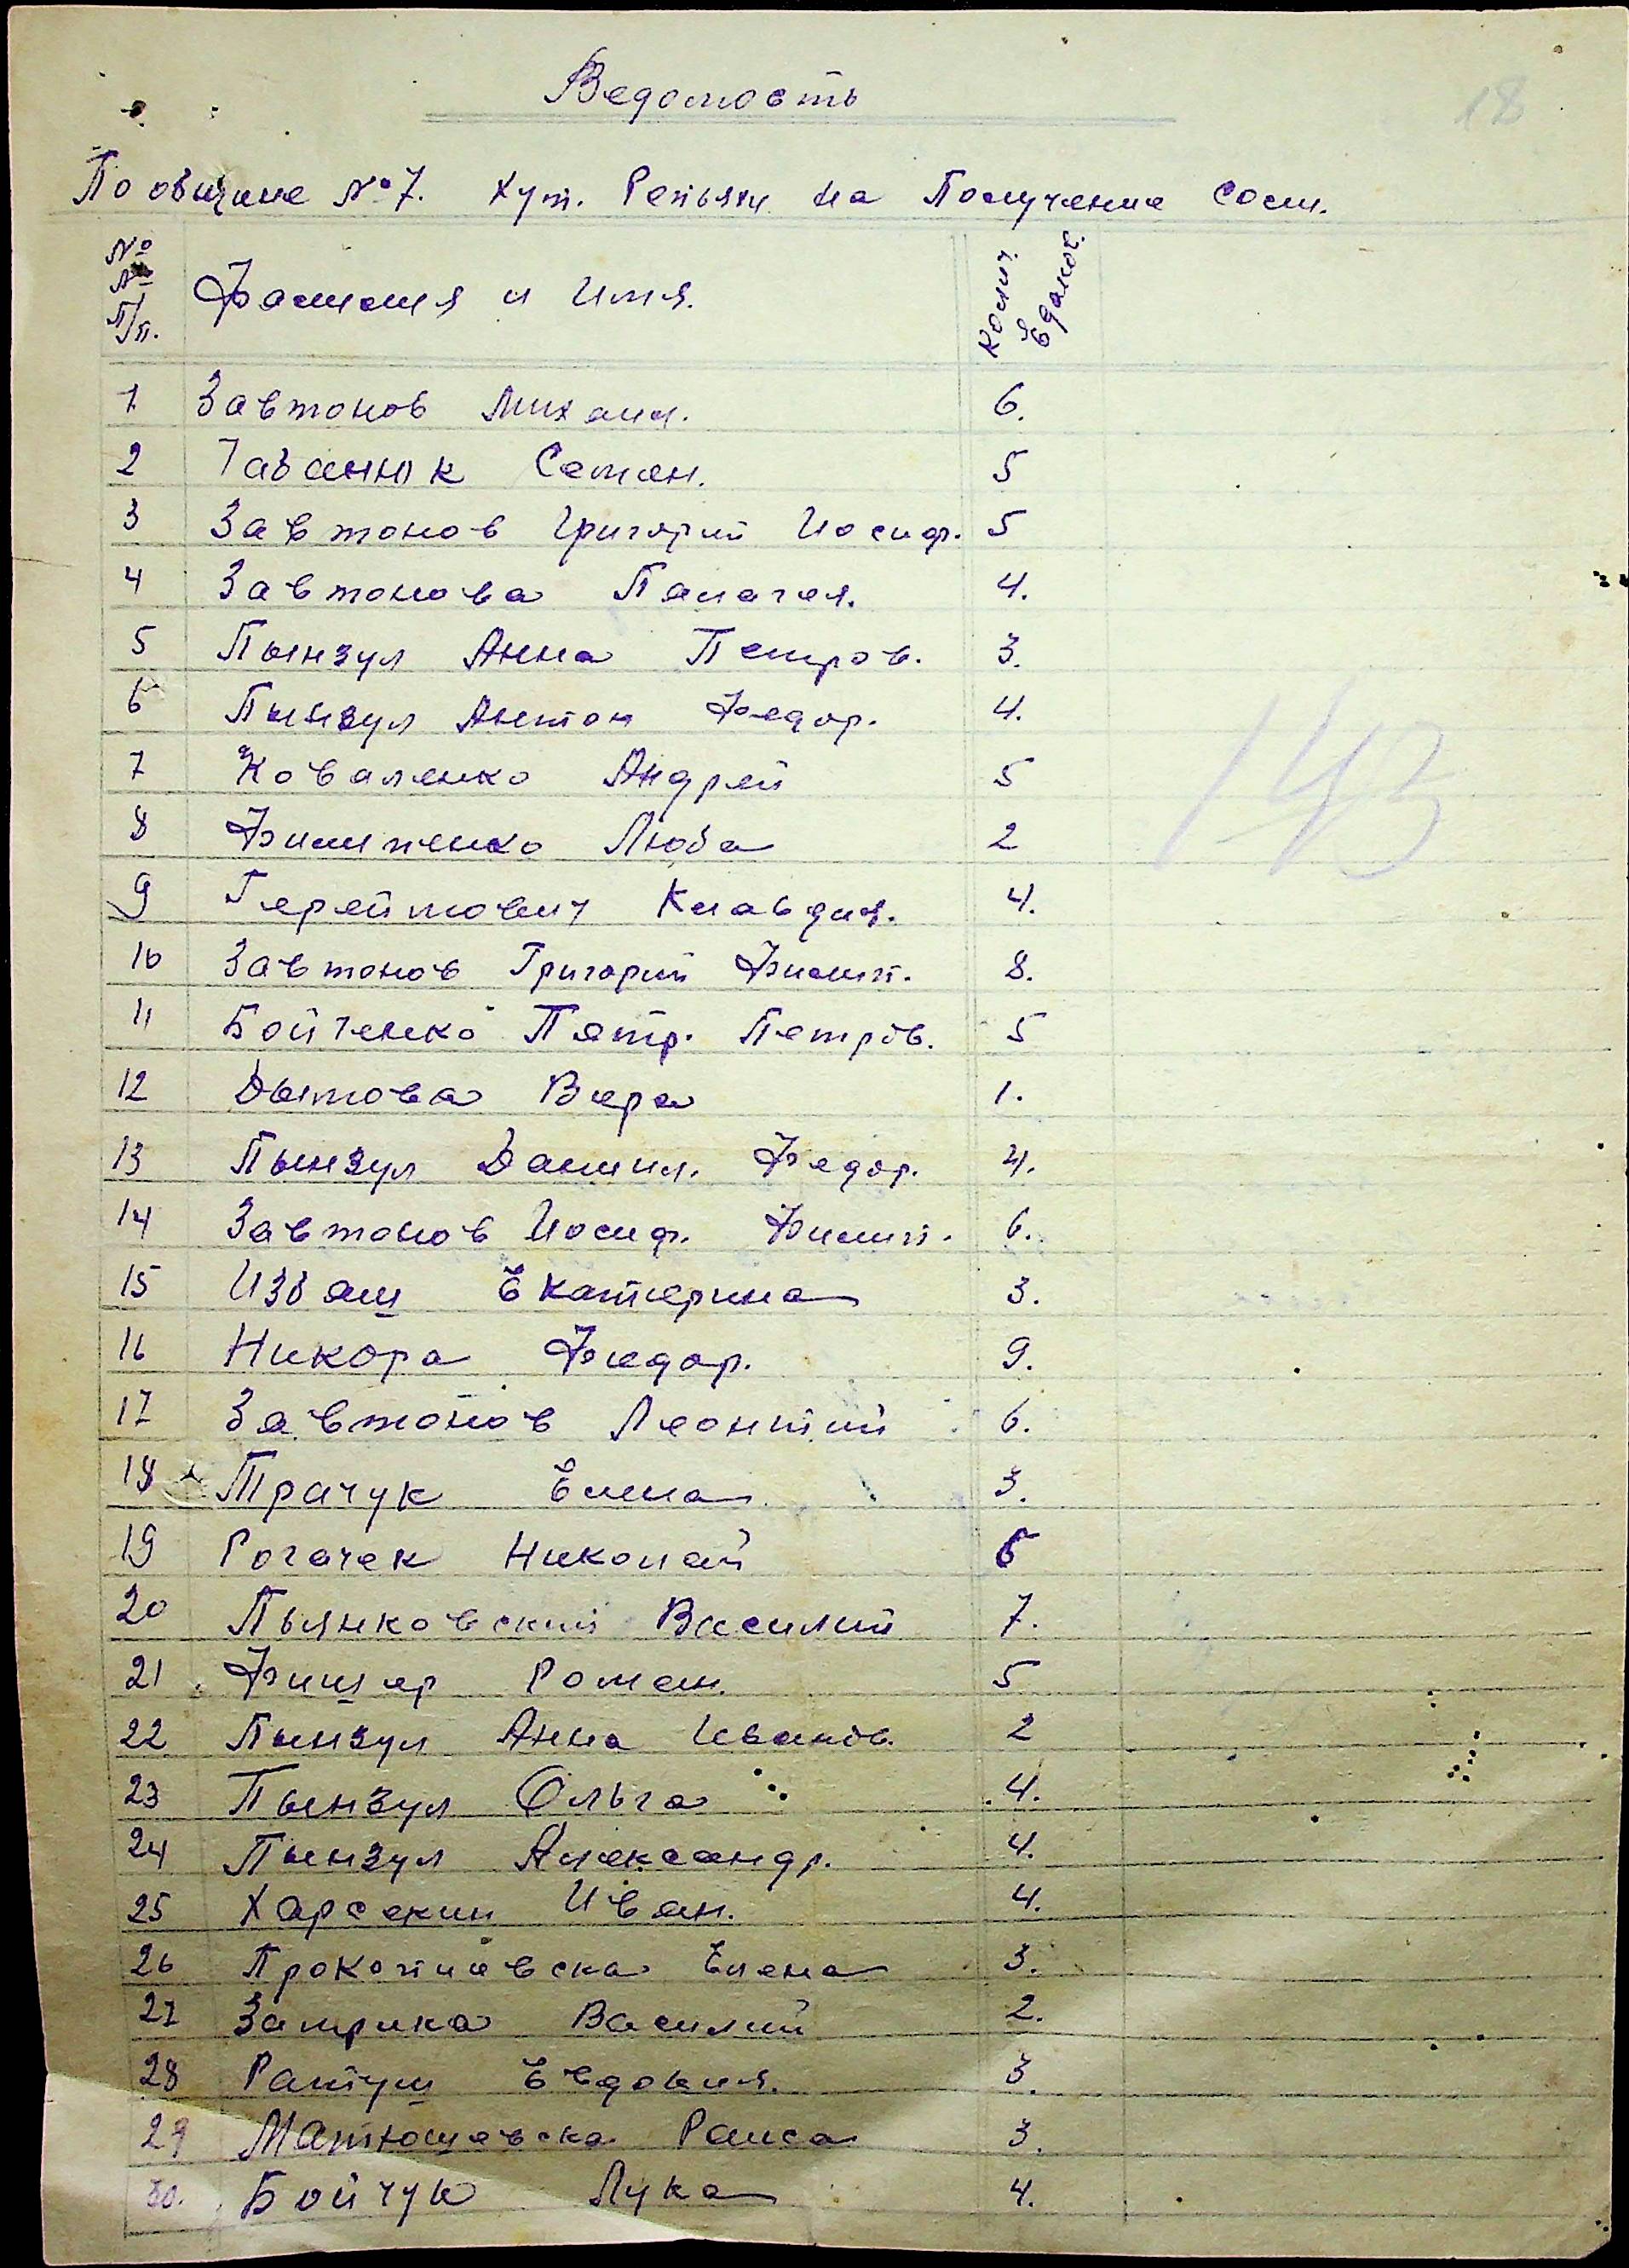 18
Ведомость
По общине №7. Хут. Репьяхи на Получение Соли.
№ № П/п. Фамилия и Имя. Колич. Едаков.
1 Завтонов Михаил. 6.
2 Чабанюк Семен. 5
3 Завтонов Григорий Иосиф. 5
4 Завтонова Палагея. 4.
5 Пынзул Анна Петров. 3.
6 Пынзул Антон Федор. 4.
7 Коваленко Андрей 5
8 Филипенко Люба 2
9 Герейтович Клавдия. 4.
10 Завтонов Григорий Филип. 8.
11 Бойченко Петр. Петров. 5
12 Дымова Вера 1.
13 Пынзул Данил. Федор. 4.
14 Завтонов Иосиф. Филип. 6.
15 Избаш Екатерина 3.
16 Никора Федор. 9.
17 Завтонов Леонтий 6.
18 Трачук Елена 3.
19 Рогачек Николай 5
20 Пьянковский Василий 7.
21 Фишер Роман. 5
22 Пынзул Анна Иванов. 2
23 Пынзул Ольга 4.
24 Пынзул Александр. 4.
25 Харсекин Иван. 4.
26 Прокопиевска Елена 3.
27 Заприка Василий 2.
28 Раптуш Евдокия. 3.
29 Матюшевска Раиса 3.
30. Бойчук Лука 4.
143